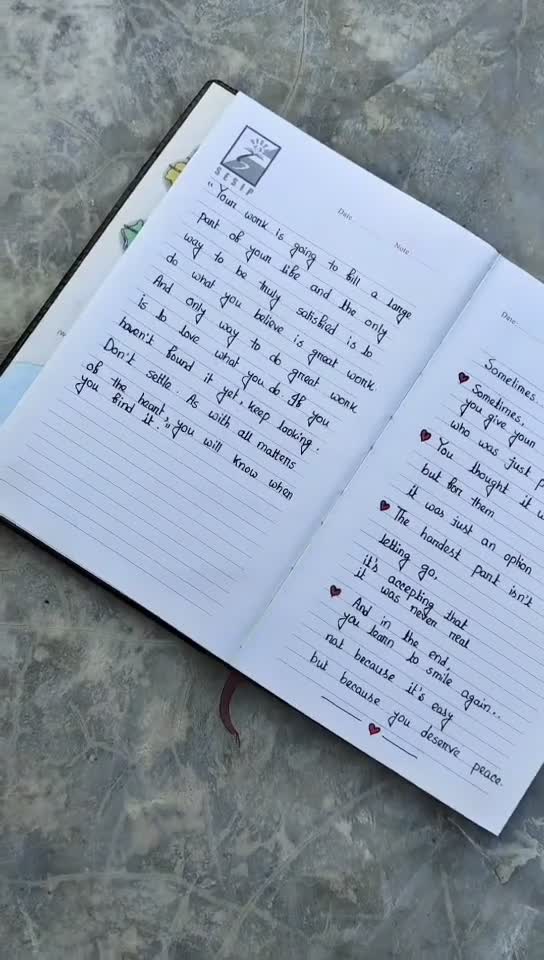 SESIP
Date
Note
"Your work is going to fill a large
part of your life and the only
way to be truly satisfied is to
do what you believe is great work.
And only way to do great work
is to love what you do. If you
haven't found it yet, keep looking.
Don't settle. As with all matters
of the heart, you will know when
you find it."
Date
Sometimes..
Sometimes,
you give your
who was just
You thought it
but for them
it was just an option
The hardest part isn't
letting go,
it's accepting that
it was never real
And in the end,
you learn to smile again..
not because it's easy
but because you deserve peace.